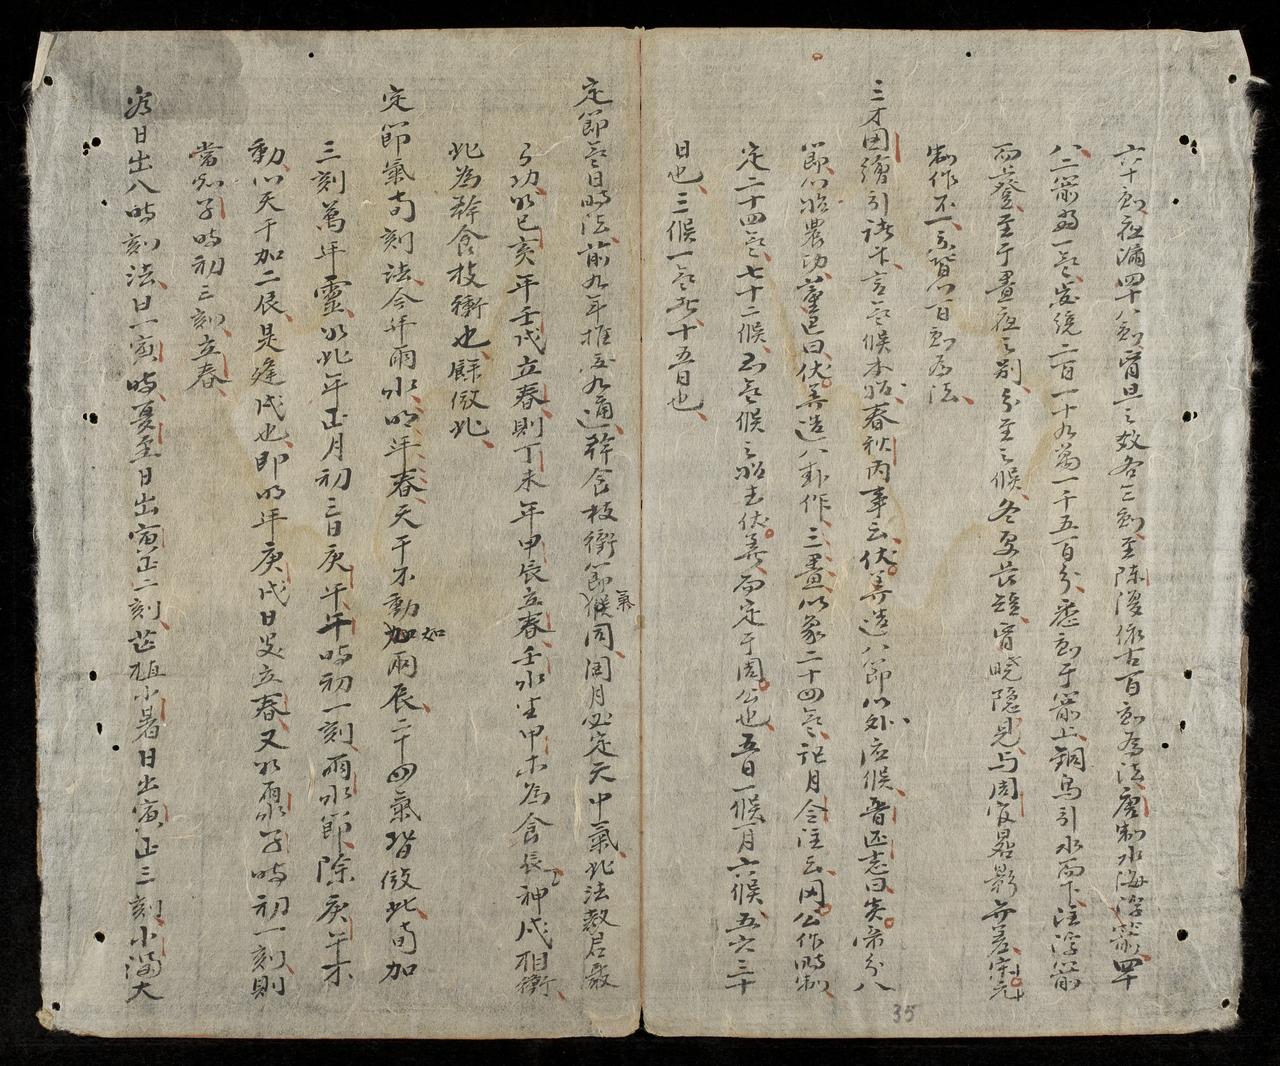 六十刻夜漏四十八刻宵旦之数各三刻至陳復依古百刻為法唐制水海浮箭四十
八二箭為一气歲統二百一十九萬一千五百分悉刻于箭上銅烏引水而下注浮箭
而登至于晝夜之别分至之候冬夏長短宵晓隐見与周官晷影並差宋元
制作不一亦皆以百刻為法
三才圖繪引諸卜言气候本始春秋内事云伏羲造八節以外应候晋历志曰炎帝分八
節以始農功董巴曰伏羲造八卦作三畫以象二十四气記月令注云周公作時制
定二十四气七十二候則气候之始去伏羲而定于周公也五日一候一月六候五六三十
日也三候一气者十五日也
定節气日時法前九年推至九通幹食枝衝節氣候同閏月必定天中氣此法教君最
了功以己亥年壬戌立春則丁未年甲辰立春壬水生甲木為食辰神戌相衝
此為幹食枝衝也餘倣此
定節氣旬刻法今年雨水明年春天干不動如加兩辰二十四氣皆倣此旬加
三刻萬年靈以此年正月初三日庚午午時初一刻雨水節除庚年不
動以天干加二辰是逢戌也即明年庚戌日是立春又以雨水子時初一刻則
當知子時初三刻立春
看日出入時刻法日一寅時夏至日出寅正二刻芒植小暑日出寅正三刻小滿大
35